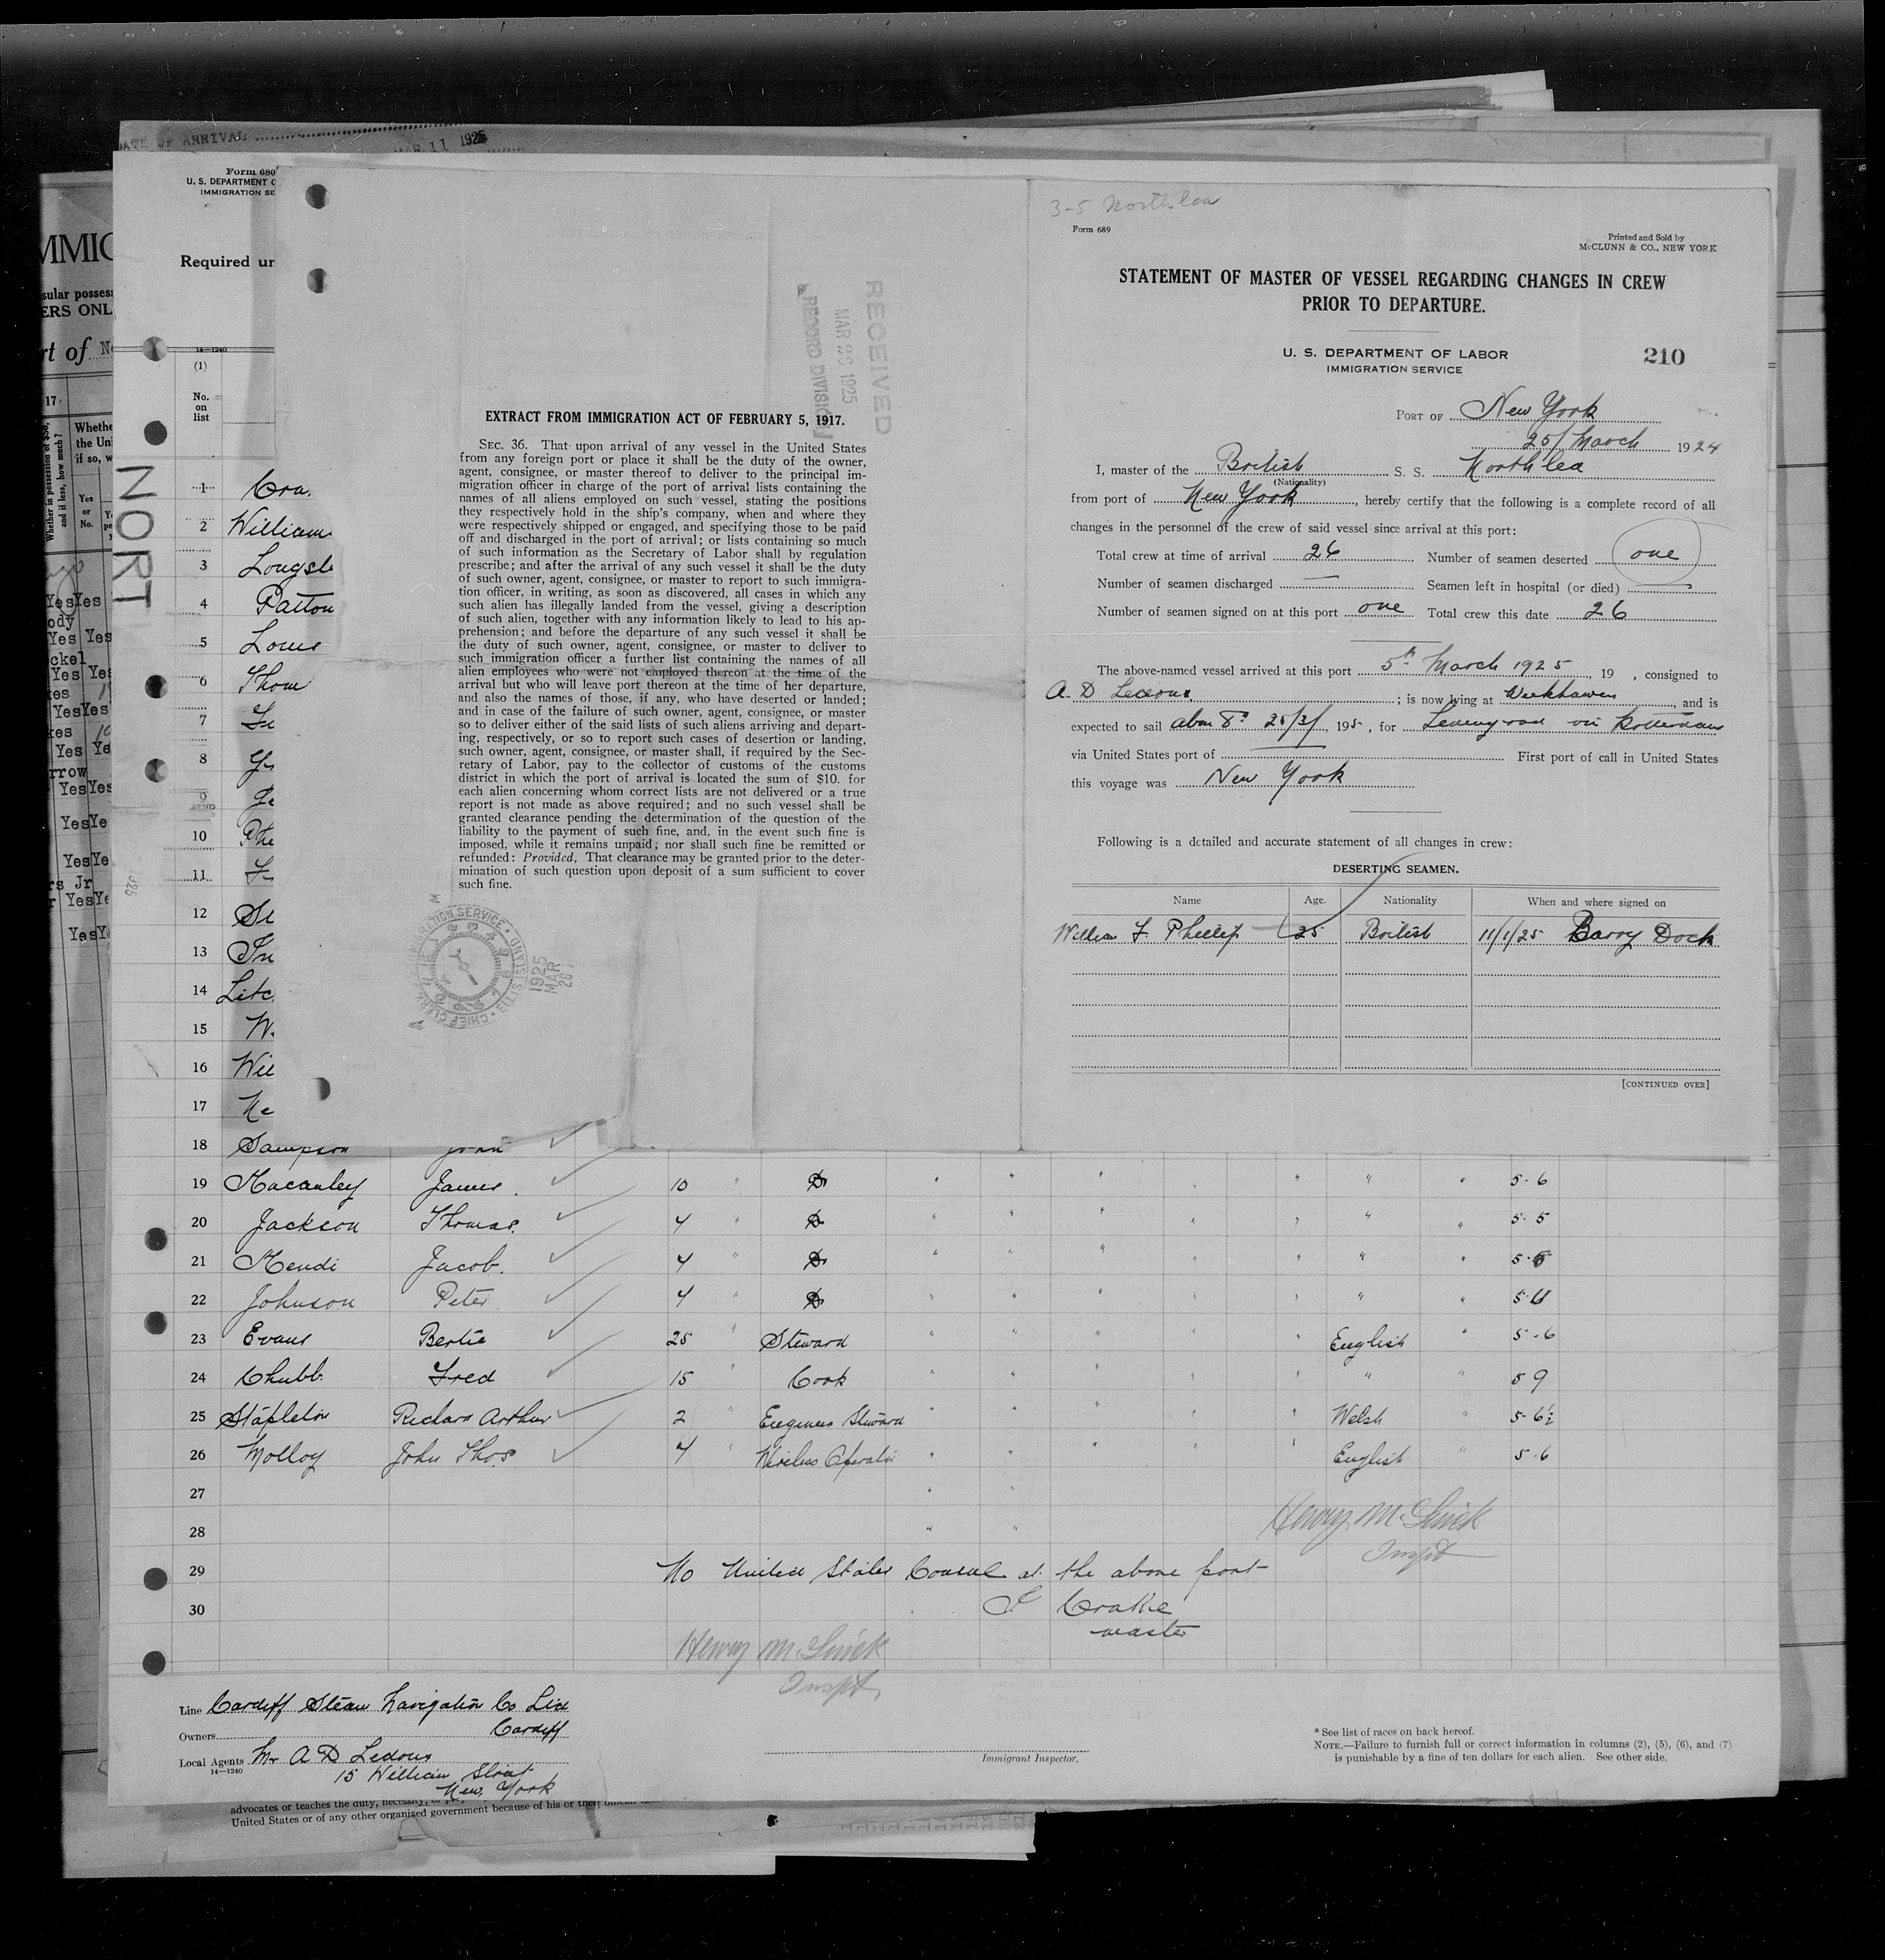 DATE OF ARRIVAL
MAR 11 1925
Form 680
U. S. DEPARTMENT
IMMIGRATION SE
Required un
MMIG
sular possess
ERS ONL
rt of
17
Whether in possession of $50, and if less, how much?
Whethe
the Uni
if so, w
Yes
or
No.
YesYes
ody
Yes Yes
ckel
Yes Yes
kes
YesYes
kes
Yes Ye
rrow
YesYes
YesYe
YesYe
rs Jr
YesYe
YesY
NORT
14—1240
(1)
No.
on
list
EXTRACT FROM IMMIGRATION ACT OF FEBRUARY 5, 1917.
SEC. 36. That upon arrival of any vessel in the United States
from any foreign port or place it shall be the duty of the owner,
agent, consignee, or master thereof to deliver to the principal im-
migration officer in charge of the port of arrival lists containing the
names of all aliens employed on such vessel, stating the positions
they respectively hold in the ship's company, when and where they
were respectively shipped or engaged, and specifying those to be paid
off and discharged in the port of arrival; or lists containing so much
of such information as the Secretary of Labor shall by regulation
prescribe; and after the arrival of any such vessel it shall be the duty
of such owner, agent, consignee, or master to report to such immigra-
tion officer, in writing, as soon as discovered, all cases in which any
such alien has illegally landed from the vessel, giving a description
of such alien, together with any information likely to lead to his ap-
prehension; and before the departure of any such vessel it shall be
the duty of such owner, agent, consignee, or master to deliver to
such immigration officer a further list containing the names of all
alien employees who were not employed thereon at the time of the
arrival but who will leave port thereon at the time of her departure,
and also the names of those, if any, who have deserted or landed;
and in case of the failure of such owner, agent, consignee, or master
so to deliver either of the said lists of such aliens arriving and depart-
ing, respectively, or so to report such cases of desertion or landing,
such owner, agent, consignee, or master shall, if required by the Sec-
retary of Labor, pay to the collector of customs of the customs
district in which the port of arrival is located the sum of $10. for
each alien concerning whom correct lists are not delivered or a true
report is not made as above required; and no such vessel shall be
granted clearance pending the determination of the question of the
liability to the payment of such fine, and, in the event such fine is
imposed, while it remains unpaid, nor shall such fine be remitted or
refunded: Provided, That clearance may be granted prior to the deter-
mination of such question upon deposit of a sum sufficient to cover
such fine.
RECEIVED
MAR 26 1925
RECORD DIVISION
IMMIGRATION SERVICE • ELLIS ISLAND • CHIEF CLERK
1925
MAR
26
3-5 Northlea
Form 689
Printed and Sold by
McCLUNN & CO., NEW YORK
STATEMENT OF MASTER OF VESSEL REGARDING CHANGES IN CREW
PRIOR TO DEPARTURE.
U. S. DEPARTMENT OF LABOR
IMMIGRATION SERVICE
210
PORT OF New York
25/March 1924
I, master of the British S. S. Northlea
(Nationality)
from port of New York, hereby certify that the following is a complete record of all
changes in the personnel of the crew of said vessel since arrival at this port:
Total crew at time of arrival 26 Number of seamen deserted one
Number of seamen discharged — Seamen left in hospital (or died) —
Number of seamen signed on at this port one Total crew this date 26
The above-named vessel arrived at this port 5th March 1925, 19 , consigned to
A. D Ledoux; is now lying at Weehawken, and is
expected to sail about 25/3/, 195, for Leningrad via Rotterdam
via United States port of — First port of call in United States
this voyage was New York
Following is a detailed and accurate statement of all changes in crew:
DESERTING SEAMEN.
Name Age. Nationality When and where signed on
William F. Phillips 25 British 11/1/25 Barry Dock
[CONTINUED OVER]
1 Cra
2 William
3 Longst
4 Patton
5 Lowe
6 Thom
7
8
9
10 Phe
11
12
13
14 Litc
15 W
16 Wil
17 Ne
18 Sampson John
19 Macauley James 10 " D " " " " " " " 5.6
20 Jackson Thomas 4 " D " " " " " " " 5.5
21 Mendi Jacob. 4 " D " " " " " " "
22 Johnson Peter 4 " D " " " " " " "
23 Evans Bertie 25 " Steward " " " " " English " 5.6
24 Chubb Fred 15 Cook " " " " " " " 5 9
25 Stapleton Richard Arthur 2 " Engineers Steward " " " " " Welsh " 5.6½
26 Molloy John Thos 4 " Wireless Operator " " " " " English " 5.6
27 " "
28 " "
Henry M Slick
Inspt
29 No United States Consul at the above port
30 J Crake
master
Henry M Slick
Inspt.
Line Cardiff Steam Navigation Co Ltd
Owners Cardiff
Local Agents Mr A D Ledoux
14—1240
15 William Street
New York
Immigrant Inspector.
* See list of races on back hereof.
NOTE.—Failure to furnish full or correct information in columns (2), (5), (6), and (7)
is punishable by a fine of ten dollars for each alien. See other side.
advocates or teaches the duty, necessity, or
United States or of any other organized government because of his or their official